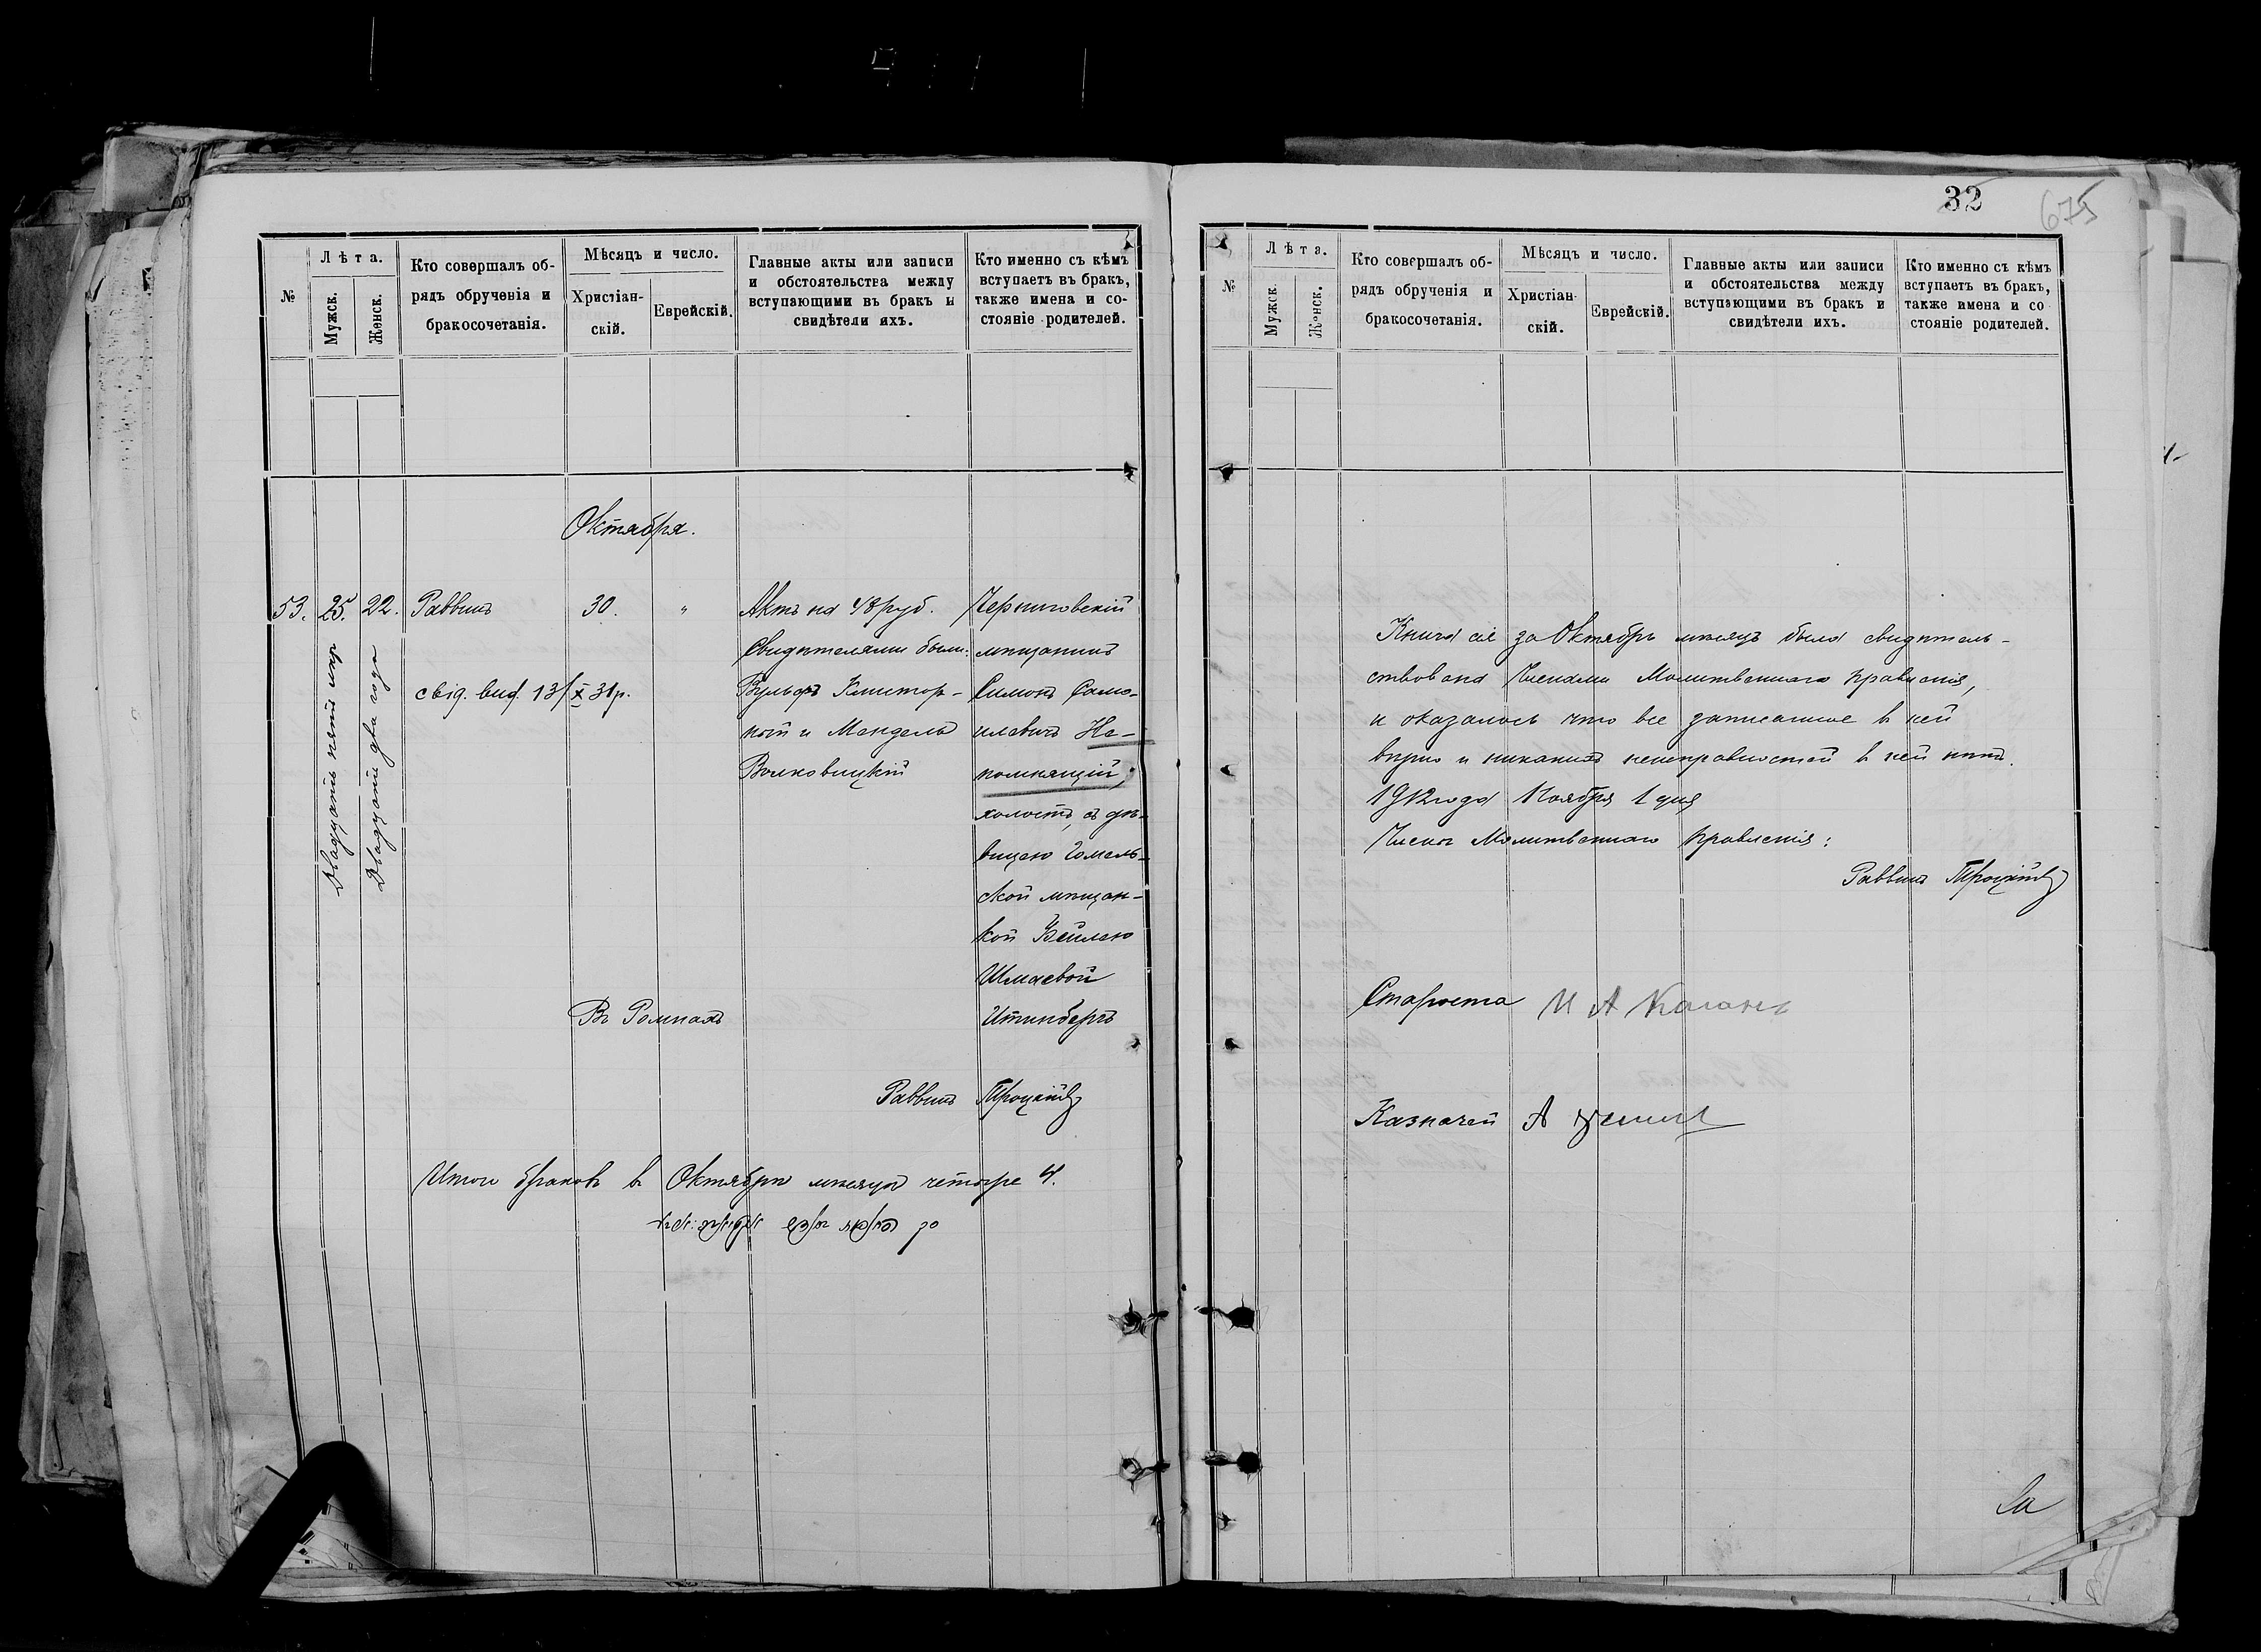 32
675
№
Лѣта.
Мужск.
Женск.
Кто совершалъ об-
рядъ обрученія и
бракосочетанія.
Мѣсяцъ и число.
Христіан-
скій.
Еврейскій.
Главные акты или записи
и обстоятельства между
вступающими въ бракъ и
свидѣтели ихъ.
Кто именно съ кѣмъ
вступаетъ въ бракъ,
также имена и со-
стояніе родителей.
Октября.
53.
25.
Двадцать пять лѣтъ
22.
Двадцать два года
Раввинъ
свід. вид. 13/X 31р.
30.
"
Въ Ромнахъ
Актъ на 48 руб.
Свидѣтелями были:
Вульфъ
и Мендель
Волковицкій
Черниговскій
мѣщанинъ
Симонъ Само-
иловичъ Не-
помнящій,
холостъ, съ дѣ-
вицею Гомель-
ской мѣщан-
кой Бейлею
Шмаевой
Итинбергъ
Раввинъ Троцкій
Итого браковъ въ Октябрѣ мѣсяцѣ четыре 4.
№
Лѣта.
Мужск.
Женск.
Кто совершалъ об-
рядъ обрученія и
бракосочетанія.
Мѣсяцъ и число.
Христіан-
скій.
Еврейскій.
Главные акты или записи
и обстоятельства между
вступающими въ бракъ и
свидѣтели ихъ.
Кто именно съ кѣмъ
вступаетъ въ бракъ,
также имена и со
стояніе родителей.
Книга сія за Октябрь мѣсяцъ была свидѣтель-
ствована Членами Молитвеннаго Правленія,
и оказалось что все записанное въ ней
вѣрно и никакихъ неисправностей въ ней нѣтъ.
1912 года Ноября 1 дня
Члены Молитвеннаго Правленія:
Раввинъ Троцкій
Староста И А Каганъ
Казначей А